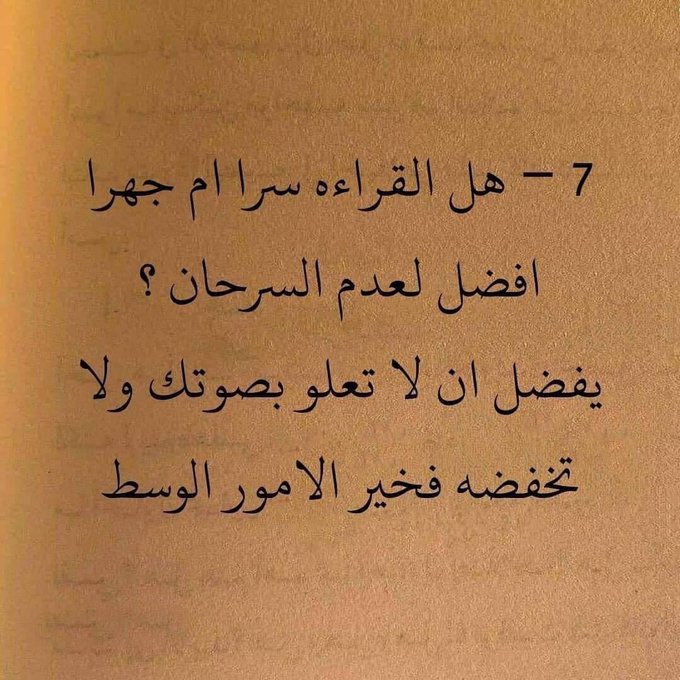 7 – هل القراءه سرا ام جهرا
افضل لعدم السرحان ؟
يفضل ان لا تعلو بصوتك ولا
تخفضه فخير الامور الوسط